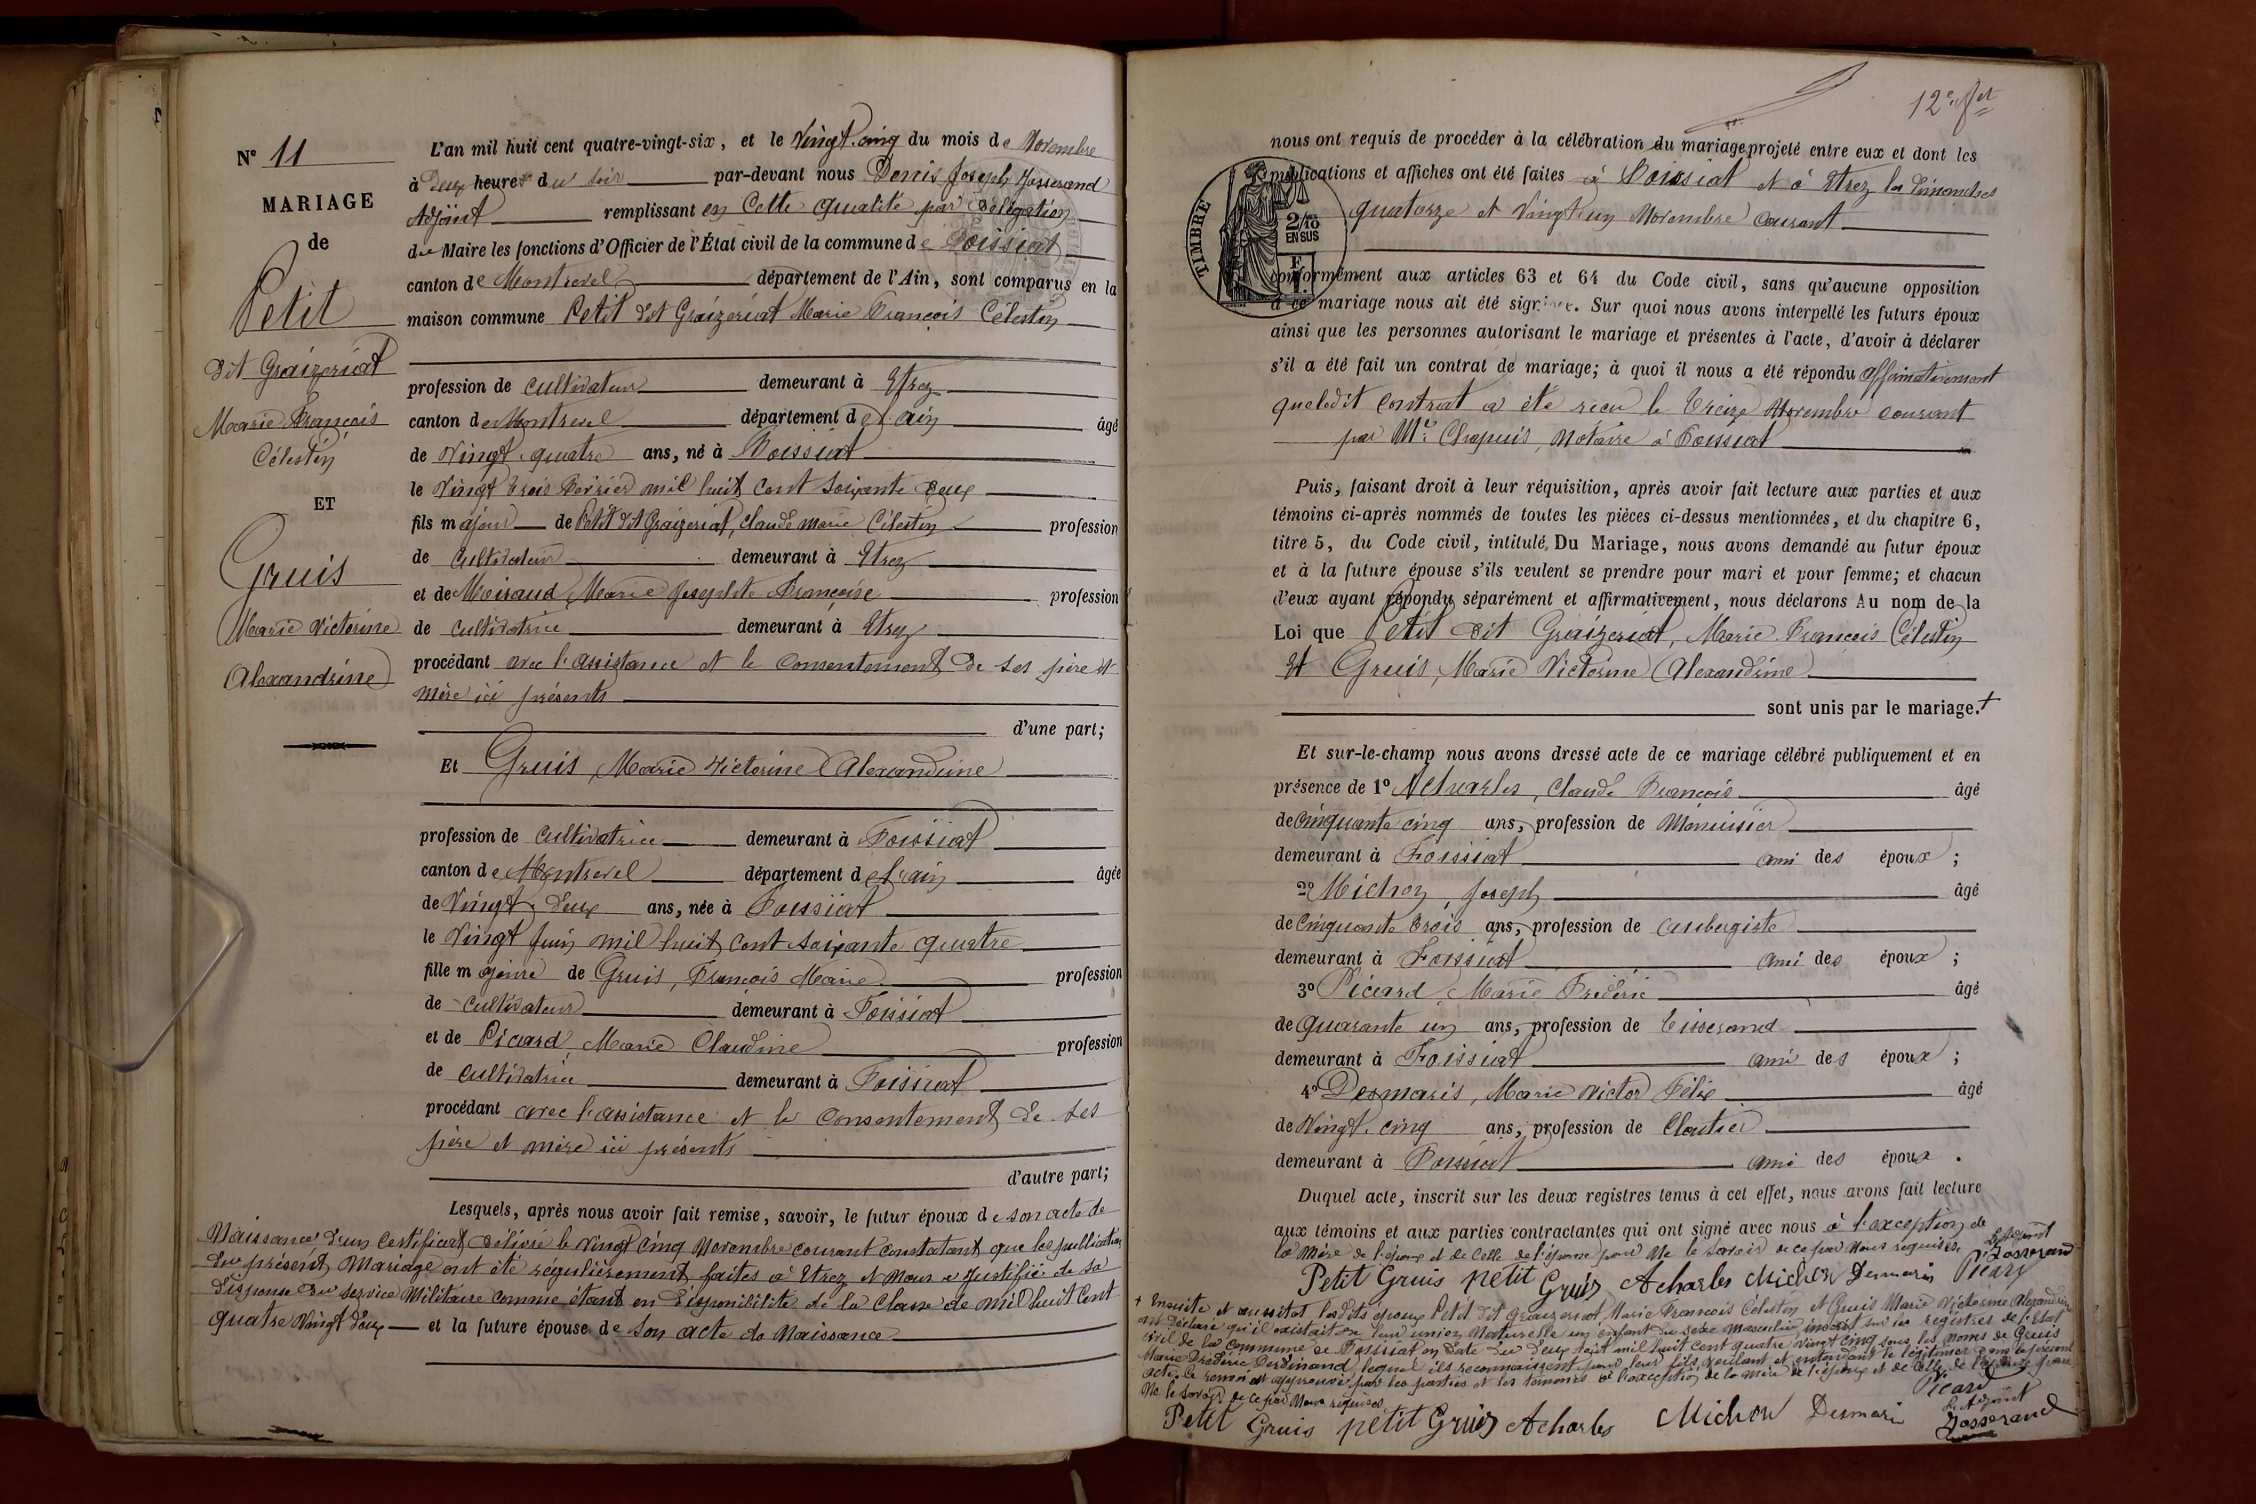 N° 11
MARIAGE
de
Petit
dit Graizeriat
Marie François
Célestin
ET
Gruis
Marie Victorine
Alexandrine
L'an mil huit cent quatre-vingt-six, et le Vingt cinq du mois de Novembre
à Deux heures du soir par-devant nous Denis Joseph Josserand
Adjoint remplissant en Cette qualité par Délégation
du Maire les fonctions d'Officier de l'État civil de la commune de Foissiat
canton de Montrevel département de l'Ain, sont comparus en la
maison commune Petit dit Graizeriat Marie François Célestin
profession de cultivateur demeurant à Etrez
canton de Montrevel département de l'ain âgé
de Vingt quatre ans, né à Foissiat
le Vingt trois Février mil huit cent soixante deux
fils majeur de Petit dit Graizeriat, Claude Marie Célestin profession
de cultivateur demeurant à Etrez
et de Moiraud, Marie Josephte Françoise profession
de cultivatrice demeurant à Etrez
procédant avec l'assistance et le consentement de ses père et
mère ici présents
d'une part;
Et Gruis, Marie Victorine Alexandrine
profession de cultivatrice demeurant à Foissiat
canton de Montrevel département de l'ain âgée
de Vingt deux ans, née à Foissiat
le Vingt Juin mil huit cent soixante quatre
fille majeure de Gruis, François Marie profession
de cultivateur demeurant à Foissiat
et de Picard, Marie Claudine profession
de cultivatrice demeurant à Foissiat
procédant avec l'assistance et le consentement de ses
père et mère ici présents
d'autre part;
Lesquels, après nous avoir fait remise, savoir, le futur époux de son acte de
Naissance d'un certificat délivré le Vingt Cinq Novembre courant constatant que les publications
du présent Mariage ont été régulièrement faites à Etrez et Nous a Justifié de sa
dispense du service Militaire comme étant en disponibilité de la classe de mil huit cent
quatre Vingt deux et la future épouse de son acte de Naissance
12e ft
nous ont requis de procéder à la célébration du mariage projeté entre eux et dont les
publications et affiches ont été faites à Foissiat et à Etrez les Dimanches
quatorze et Vingt un Novembre courant
TIMBRE
2/10
EN SUS
conformément aux articles 63 et 64 du Code civil, sans qu'aucune opposition
à ce mariage nous ait été signifiée. Sur quoi nous avons interpellé les futurs époux
ainsi que les personnes autorisant le mariage et présentes à l'acte, d'avoir à déclarer
s'il a été fait un contrat de mariage; à quoi il nous a été répondu affirmativement
que ledit contrat a été reçu le treize Novembre courant
par Me Chapuis, Notaire à Foissiat
Puis, faisant droit à leur réquisition, après avoir fait lecture aux parties et aux
témoins ci-après nommés de toutes les pièces ci-dessus mentionnées, et du chapitre 6,
titre 5, du Code civil, intitulé, Du Mariage, nous avons demandé au futur époux
et à la future épouse s'ils veulent se prendre pour mari et pour femme; et chacun
d'eux ayant répondu séparément et affirmativement, nous déclarons Au nom de la
Loi que Petit dit Graizeriat, Marie François Célestin
Et Gruis, Marie Victorine Alexandrine
sont unis par le mariage. +
Et sur-le-champ nous avons dressé acte de ce mariage célébré publiquement et en
présence de 1° Acharles, Claude François âgé
de Cinquante cinq ans, profession de Menuisier
demeurant à Foissiat ami des époux ;
2° Michon, Joseph âgé
de Cinquante trois ans, profession de aubergiste
demeurant à Foissiat ami des époux ;
3° Picard, Marie Frédéric âgé
de quarante un ans, profession de tisserand
demeurant à Foissiat ami des époux ;
4° Desmaris, Marie Victor Félix âgé
de Vingt cinq ans, profession de Cloutier
demeurant à Foissiat ami des époux .
Duquel acte, inscrit sur les deux registres tenus à cet effet, nous avons fait lecture
aux témoins et aux parties contractantes qui ont signé avec nous à l'exception de
la Mère de l'époux et de celle de l'épouse pour Ne le savoir de ce par Nous requises
L'Adjoint
Josserand
Petit Gruis petit Gruis Acharles Michon Desmaris Picard
+ Ensuite et aussitôt les dits époux Petit dit Graizeriat, Marie François Célestin et Gruis Marie Victorine Alexandrine
ont déclaré qu'il existait de leur union Naturelle un enfant du sexe Masculin, inscrit sur les registres de l'Etat
civil de la commune de Foissiat en date du Deux mil huit cent quatre Vingt Cinq sous les Noms de Gruis
Marie Frédéric Ferdinand, lequel ils reconnaissent pour leur fils, veulant et entendant le légitimer par le présent
acte. Ce renvoi est approuvé par les parties et les témoins à l'exception de la mère de l'époux et de Celle de l'épouse pour
Ne le savoir de ce par Nous requises
Picard
L'Adjoint
Petit Gruis petit Gruis Acharles Michon Desmaris Josserand